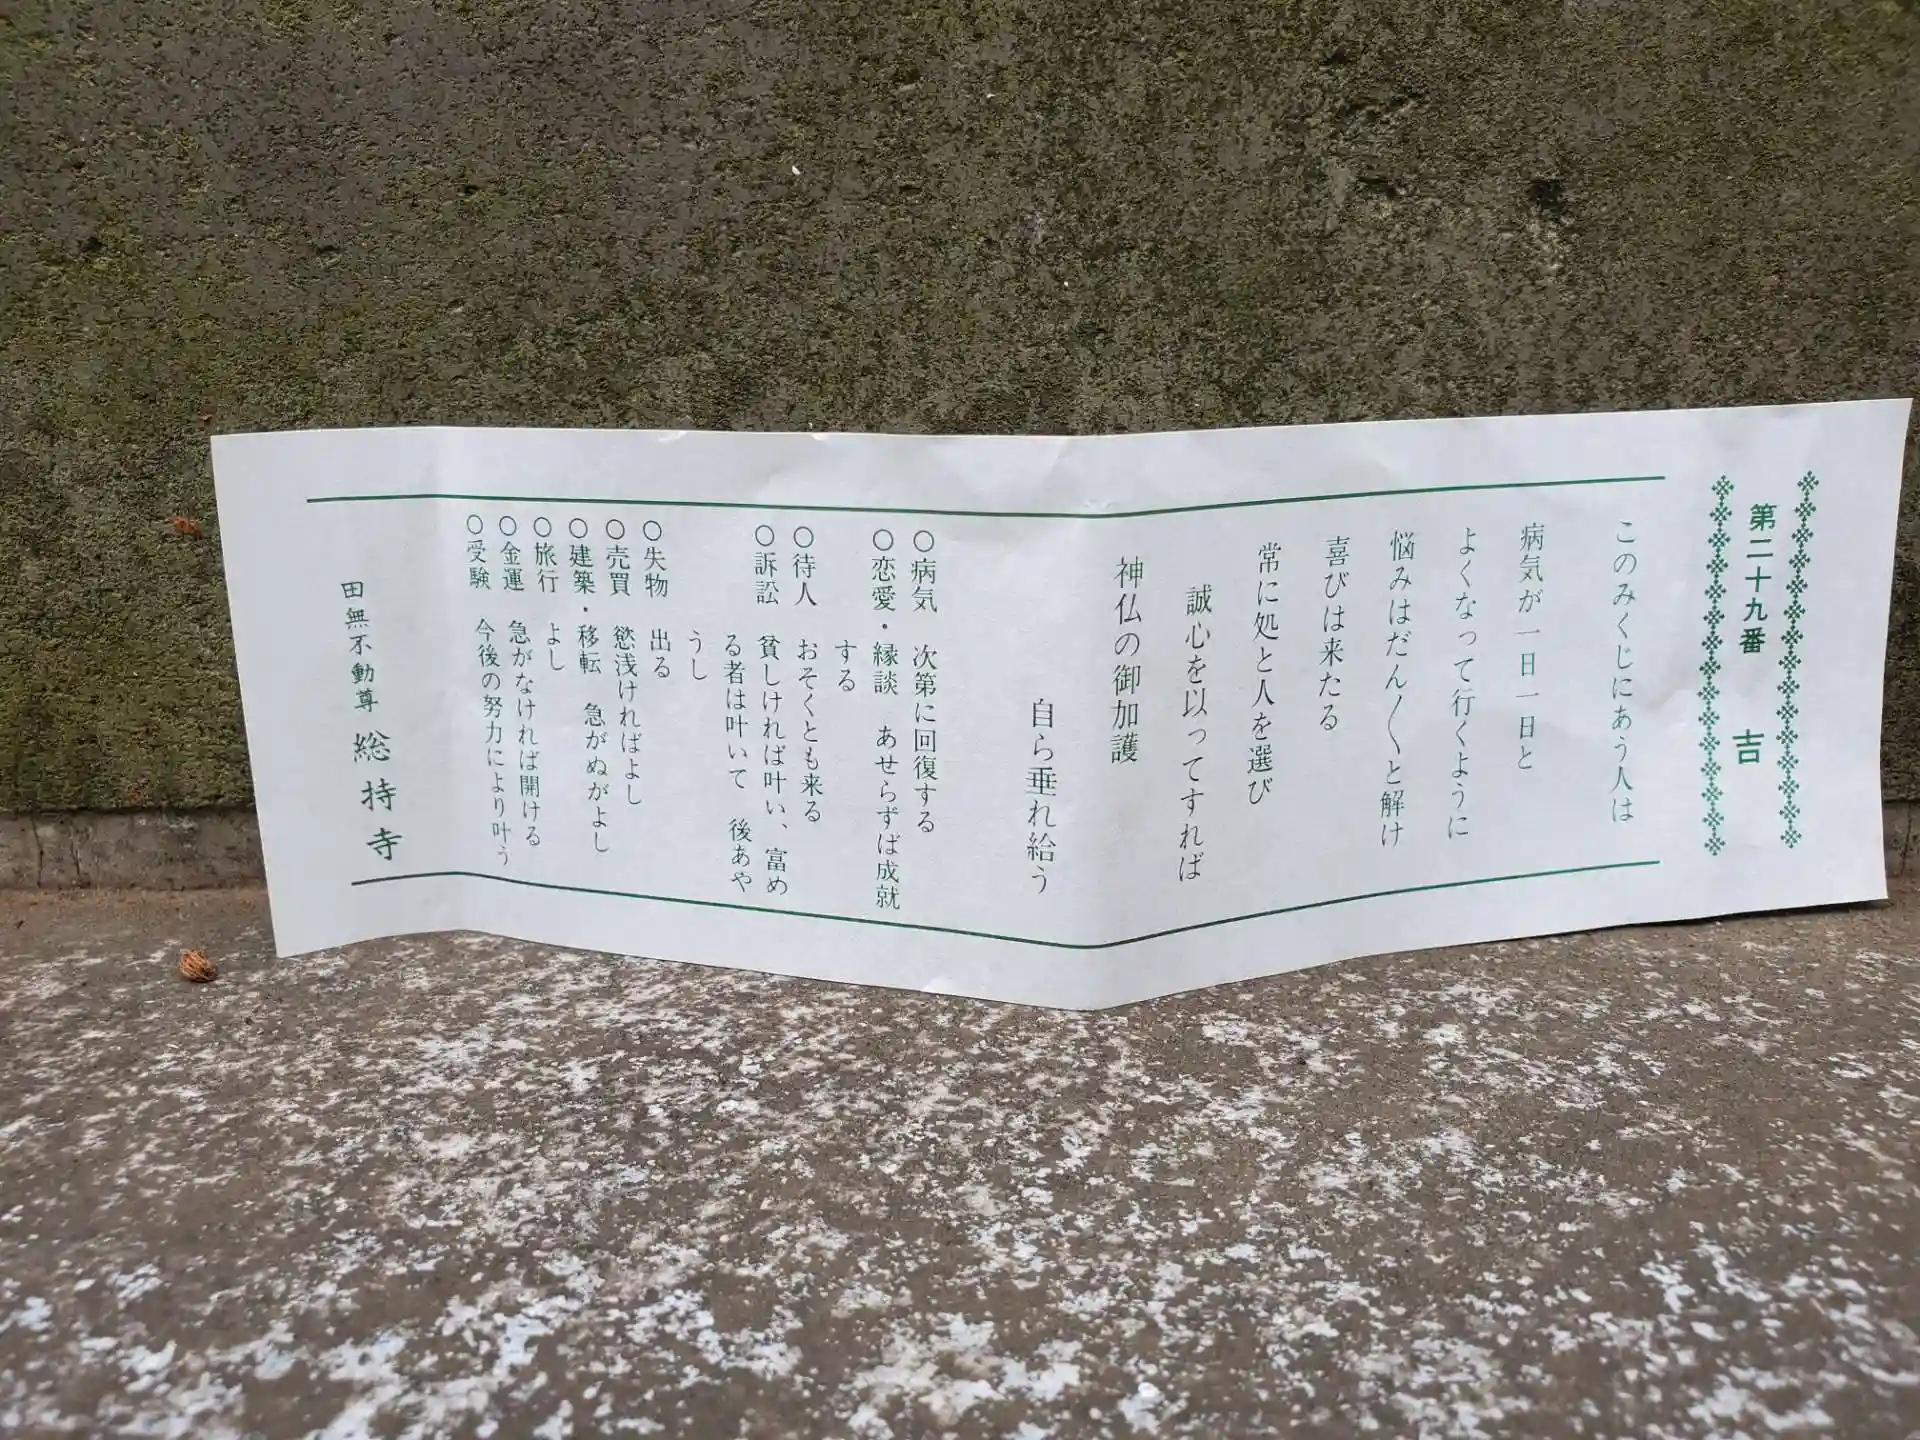 第二十九番　吉
このみくじにあう人は
病気が一日一日と
よくなって行くように
悩みはだん〳〵と解け
喜びは来たる
常に処と人を選び
誠心を以ってすれば
神仏の御加護
自ら垂れ給う
〇病気　次第に回復する
〇恋愛・縁談　あせらずば成就
する
〇待人　おそくとも来る
〇訴訟　貧しければ叶い、富め
る者は叶いて　後あや
うし
〇失物　出る
〇売買　慾浅ければよし
〇建築・移転　急がぬがよし
〇旅行　よし
〇金運　急がなければ開ける
〇受験　今後の努力により叶う
田無不動尊　総持寺